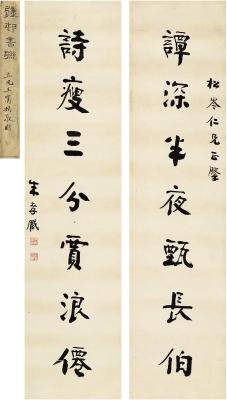 松岑仁兄正鑒
譚深半夜甄長伯
詩瘦三分賈浪僊
朱孝臧